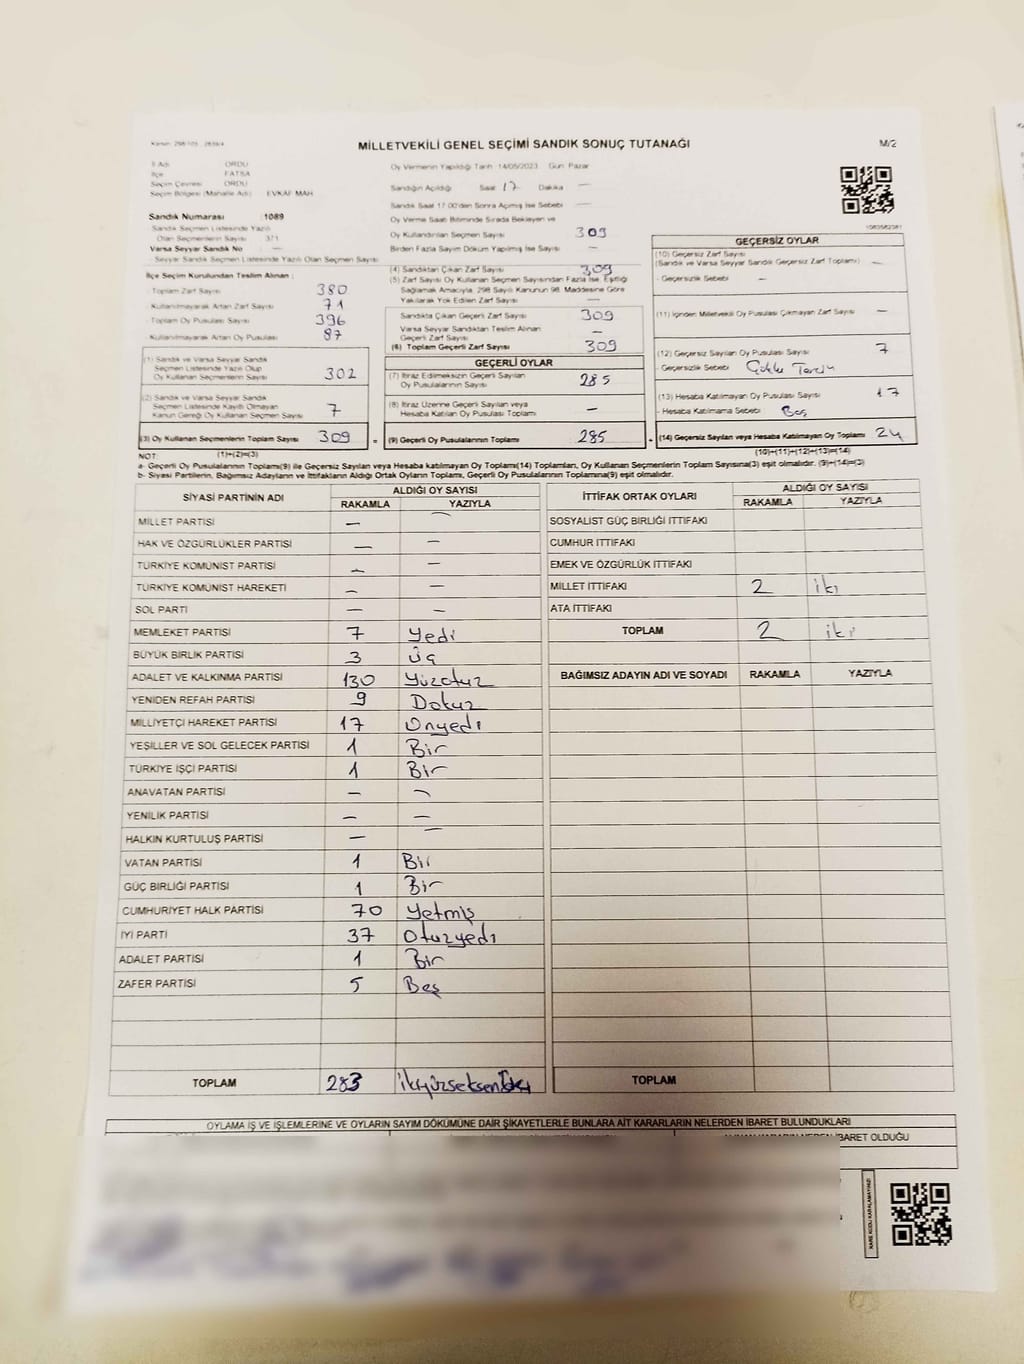 Kanun: 298/105 - 2839/4
MİLLETVEKİLİ GENEL SEÇİMİ SANDIK SONUÇ TUTANAĞI
M/2
İl Adı ORDU
İlçe FATSA
Seçim Çevresi ORDU
Seçim Bölgesi (Mahalle Adı) EVKAF MAH
Sandık Numarası :1089
Sandık Seçmen Listesinde Yazılı
Olan Seçmenlerin Sayısı : 371
Varsa Seyyar Sandık No —
- Seyyar Sandık Seçmen Listesinde Yazılı Olan Seçmen Sayısı —
İlçe Seçim Kurulundan Teslim Alınan :
- Toplam Zarf Sayısı 380
- Kullanılmayarak Artan Zarf Sayısı 71
- Toplam Oy Pusulası Sayısı 396
- Kullanılmayarak Artan Oy Pusulası 87
(1) Sandık ve Varsa Seyyar Sandık
Seçmen Listesinde Yazılı Olup
Oy Kullanan Seçmenlerin Sayısı 302
(2) Sandık ve Varsa Seyyar Sandık
Seçmen Listesinde Kayıtlı Olmayan
Kanun Gereği Oy Kullanan Seçmen Sayısı 7
(3) Oy Kullanan Seçmenlerin Toplam Sayısı 309 =
Oy Vermenin Yapıldığı Tarih : 14/05/2023 Gün : Pazar
Sandığın Açıldığı Saat 17 Dakika —
Sandık Saat 17.00'den Sonra Açılmış İse Sebebi —
Oy Verme Saati Bitiminde Sırada Bekleyen ve
Oy Kullandırılan Seçmen Sayısı 309
Birden Fazla Sayım Döküm Yapılmış İse Sayısı —
(4) Sandıktan Çıkan Zarf Sayısı 309
(5) Zarf Sayısı Oy Kullanan Seçmen Sayısından Fazla İse, Eşitliği
Sağlamak Amacıyla, 298 Sayılı Kanunun 98. Maddesine Göre
Yakılarak Yok Edilen Zarf Sayısı —
Sandıkta Çıkan Geçerli Zarf Sayısı 309
Varsa Seyyar Sandıktan Teslim Alınan
Geçerli Zarf Sayısı —
(6) Toplam Geçerli Zarf Sayısı 309
GEÇERLİ OYLAR
(7) İtiraz Edilmeksizin Geçerli Sayılan
Oy Pusulalarının Sayısı 285
(8) İtiraz Üzerine Geçerli Sayılan veya
Hesaba Katılan Oy Pusulası Toplamı —
(9) Geçerli Oy Pusulalarının Toplamı 285 +
1083582381
GEÇERSİZ OYLAR
(10) Geçersiz Zarf Sayısı
(Sandık ve Varsa Seyyar Sandık Geçersiz Zarf Toplamı) —
- Geçersizlik Sebebi —
(11) İçinden Milletvekili Oy Pusulası Çıkmayan Zarf Sayısı —
(12) Geçersiz Sayılan Oy Pusulası Sayısı 7
- Geçersizlik Sebebi Çoklu Tercih
(13) Hesaba Katılmayan Oy Pusulası Sayısı 17
- Hesaba Katılmama Sebebi Boş
(14) Geçersiz Sayılan veya Hesaba Katılmayan Oy Toplamı 24
NOT: (1)+(2)=(3) (10)+(11)+(12)+(13)=(14)
a- Geçerli Oy Pusulalarının Toplamı(9) ile Geçersiz Sayılan veya Hesaba katılmayan Oy Toplamı(14) Toplamları, Oy Kullanan Seçmenlerin Toplam Sayısına(3) eşit olmalıdır. (9)+(14)=(3)
b- Siyasi Partilerin, Bağımsız Adayların ve İttifakların Aldığı Ortak Oyların Toplamı, Geçerli Oy Pusulalarının Toplamına(9) eşit olmalıdır.
SİYASİ PARTİNİN ADI ALDIĞI OY SAYISI
RAKAMLA YAZIYLA
MİLLET PARTİSİ — —
HAK VE ÖZGÜRLÜKLER PARTİSİ — —
TÜRKİYE KOMÜNİST PARTİSİ — —
TÜRKİYE KOMÜNİST HAREKETİ — —
SOL PARTİ — —
MEMLEKET PARTİSİ 7 Yedi
BÜYÜK BİRLİK PARTİSİ 3 Üç
ADALET VE KALKINMA PARTİSİ 130 Yüzotuz
YENİDEN REFAH PARTİSİ 9 Dokuz
MİLLİYETÇİ HAREKET PARTİSİ 17 Onyedi
YEŞİLLER VE SOL GELECEK PARTİSİ 1 Bir
TÜRKİYE İŞÇİ PARTİSİ 1 Bir
ANAVATAN PARTİSİ — —
YENİLİK PARTİSİ — —
HALKIN KURTULUŞ PARTİSİ — —
VATAN PARTİSİ 1 Bir
GÜÇ BİRLİĞİ PARTİSİ 1 Bir
CUMHURİYET HALK PARTİSİ 70 Yetmiş
İYİ PARTİ 37 Otuzyedi
ADALET PARTİSİ 1 Bir
ZAFER PARTİSİ 5 Beş
TOPLAM 283
İTTİFAK ORTAK OYLARI ALDIĞI OY SAYISI
RAKAMLA YAZIYLA
SOSYALİST GÜÇ BİRLİĞİ İTTİFAKI
CUMHUR İTTİFAKI
EMEK VE ÖZGÜRLÜK İTTİFAKI
MİLLET İTTİFAKI 2 iki
ATA İTTİFAKI
TOPLAM 2 iki
BAĞIMSIZ ADAYIN ADI VE SOYADI RAKAMLA YAZIYLA
TOPLAM
OYLAMA İŞ VE İŞLEMLERİNE VE OYLARIN SAYIM DÖKÜMÜNE DAİR ŞİKAYETLERLE BUNLARA AİT KARARLARIN NELERDEN İBARET BULUNDUKLARI
İBARET OLDUĞU
KARE KODU KARALAMAYINIZ